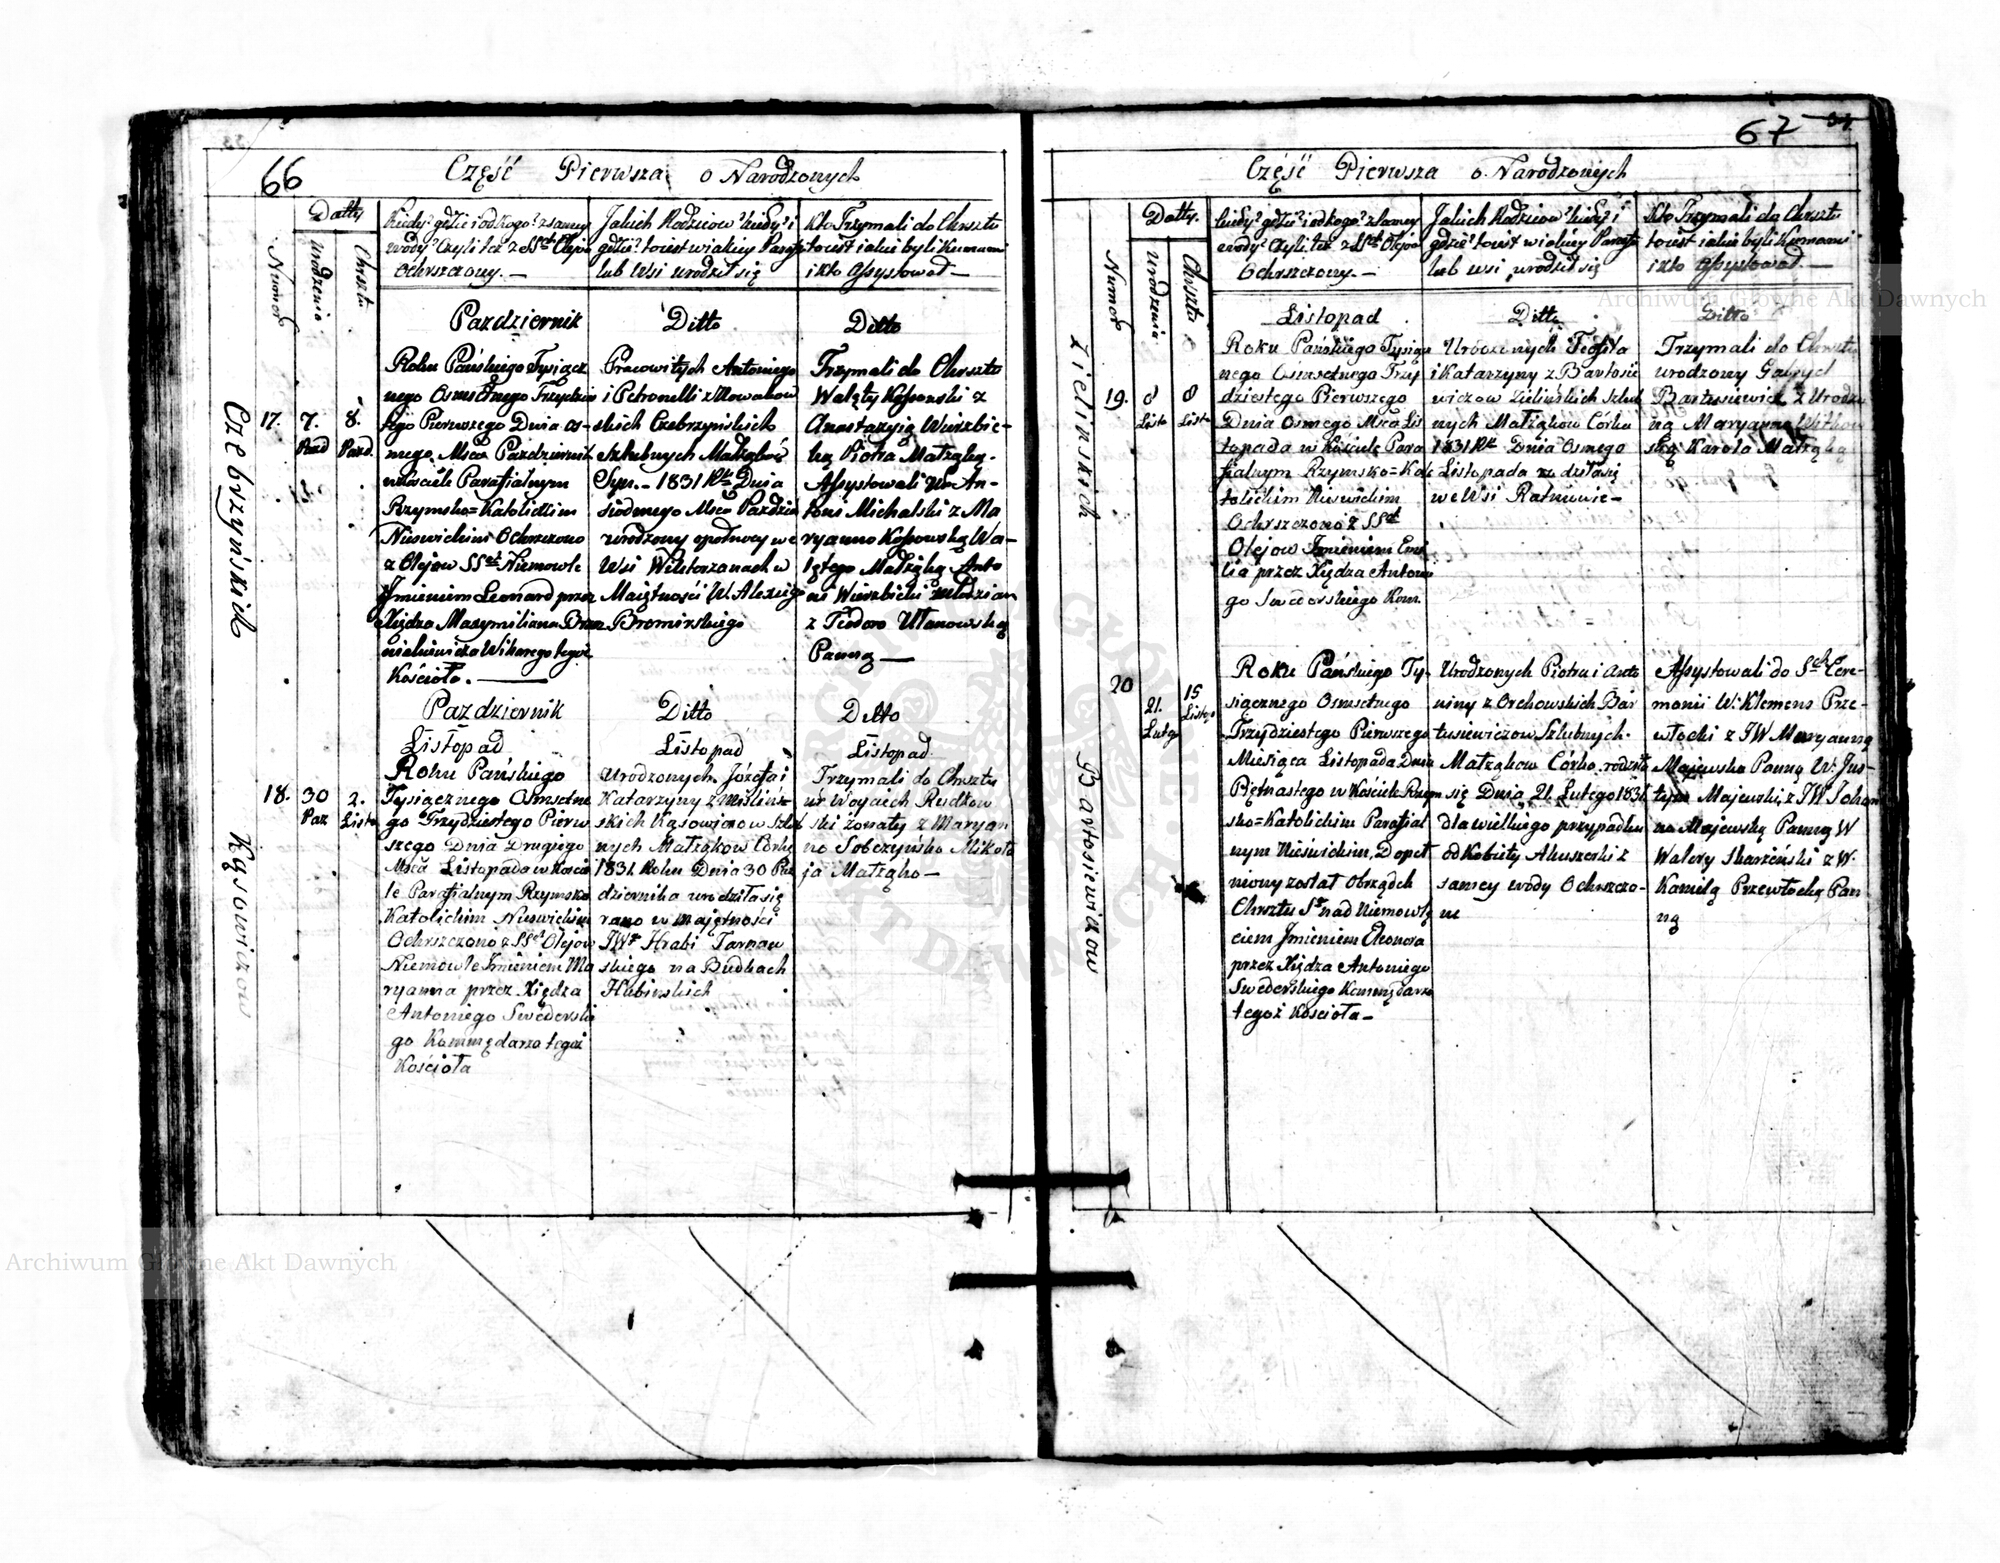 66
Część Pierwsza o Narodzonych
Datty
Numer
Urodzenia
Chrztu
Kiedy? gdzie? i od kogo? z samey
wody? Czyli też z SSch Olejów
Ochrzczony. —
Jakich Rodziców? kiedy? i
gdzie? to iest w iakiey Parafii
lub Wsi urodził się
Kto Trzymali do Chrztu
to iest iakie byli Kumami
i kto Assystował —
Pazdziernik
Ditto
Ditto
Czebrzyńskich
17.
7.
Pazd
8.
Pazd.
Roku Pańskiego Tysiącz
nego Osmsetnego Trzydzies
tego Pierwszego Dnia os-
mego Msca Pazdziernika
w Kościele Parafialnym
Rzymsko=Katolickim
Nieswickim Ochrzczono
z Olejow SSch Niemowle
Jmieniem Leonard przez
Xiędza Maxymiliana
Wikarego tegoż
Kościoła. —
Pracowitych Antoniego
i Petronelli z Nowakow
skich Czebrzyńskich
Szlubnych Małżąków
Syn. – 1831 Rku Dnia
siódmego Msca Pazdzier
urodzony opołnocy we
Wsi Wiktorzanach w
Maiętności W. Alexiego
Bromirskiego
Trzymali do Chrztu
Walęty Kossowski z
Anastazyią Wierzbic-
ką Piotra Małżąką.
Assystowali Ur. An-
toni Michalski z Ma
ryanno Kossowską Wa-
lętego Małżąką Anto
ni Wierzbicki młodzian
z Teodoro Ułanowską
Panną —
Pazdziernik
Ditto
Ditto
Listopad
Listopad
Listopad
Kąsowiczow
18.
30
Paz
2.
Listo
Roku Pańskiego
Tysiącznego Osmsetne
go Trzydziestego Pierw
szego Dnia Drugiego
Msca Listopada w Kościo
le Parafialnym Rzymsko
Katolickim Nieswickim
Ochrzczono z SSch Olejow
Niemowle Jmieniem Ma
ryanna przez Xiędza
Antoniego Swederski
go Kommędarza tegoż
Kościoła
Urodzonych Józefa i
Katarzyny z Misliń-
skich Kąsowiczow Szlub
nych Małżąkow Córka
1831 Roku Dnia 30 Paz
dziernika urodziła się
rano w majętności
JWo Hrabi Tarnow
skiego na Budkach
Hubinskich
Trzymali do Chrztu
Ur Woyciech Rudkow
ski żonaty z Maryan
no Sobczyńsko Mikoła
ja Małżąko —
67
Część Pierwsza o Narodzonych
Datty.
Numer
Urodzenia
Chrztu
kiedy? gdzie? i od kogo? z samey
wody? Czyli też z SSch Olejów
Ochrzczony. —
Jakich Rodziców? kiedy? i
gdzie? to iest w iakiey Parafii
lub wsi urodził się
Kto Trzymali do Chrztu
to iest iakie byli Kumami
i kto Assystował. —
Listopad
Ditto
Ditto
Zielińskich
19.
8
Listo
8
Listo
Roku Pańskiego Tysiącz
nego Osmsetnego Trzy
dziestego Pierwszego
Dnia Osmego Msca Lis
topada w Kościele Para
fialnym Rzymsko=Ka
tolickim Nieswickim
Ochrzczono z SSch
Olejow Jmieniem Emi
lia przez Xiędza Antoni
go Swederskiego Kom.
Urodzonych Teofila
i Katarzyny z Bartosie
wiczow Zielińskich Szlub
nych Małżąkow Córka
1831 Rku Dnia Osmego
Listopada urodziła się
we Wsi Ratniowie —
Trzymali do Chrztu
urodzony Gabryel
Bartusiewicz z Urodzo
ną Maryanną Witkow
ską Karola Małżąką
Bartosiewiczow
20
21.
Lutego
15
Listop
Roku Pańskiego Ty-
siącznego Osmsetnego
Trzydziestego Pierwszego
Miesiąca Listopada Dnia
Piętnastego w Kościele Rzym
sko=Katolickim Parafial
nym Nieświckim, Dopeł
niony został Obrządek
Chrztu Sgo nad Niemowlę
ciem Jmieniem Eleonora
przez Xiędza Antoniego
Swederskiego Kommędarza
tegoż Kościoła —
Urodzonych Piotra i Anto
niny z Orchowskich Bar
tusiewiczow Szlubnych.
Małżąkow Córka rodziła
się Dnia 21. Lutego 1831
dla wielkiego przypadku
od Kobiety Akuszerki z
samey wody Ochrzczo-
na
Assystowali do Sch Cere-
monii W. Klemens Prze-
włocki z JW Maryanną
Majewsko Panną W. Jus-
tyn Majewski z JW Johan
na Majewską Panną W
Walery Skarżeński z W.
Kamilą Przewłocką Pan
ną
Archiwum Główne Akt Dawnych
Archiwum Główne Akt Dawnych